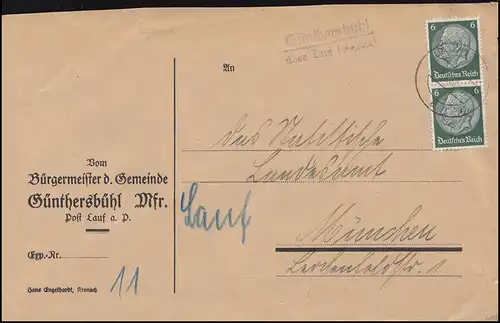 Günthersbühl
über Lauf (Pegnitz)
6 6
Deutsches Reich
6 6
Deutsches Reich
An
das Statistische
Landesamt
Vom
Bürgermeister d. Gemeinde
Günthersbühl Mfr.
Post Lauf a. P.
Lauf
München
Exp.-Nr.
Hans Engelhardt, Kronach
11